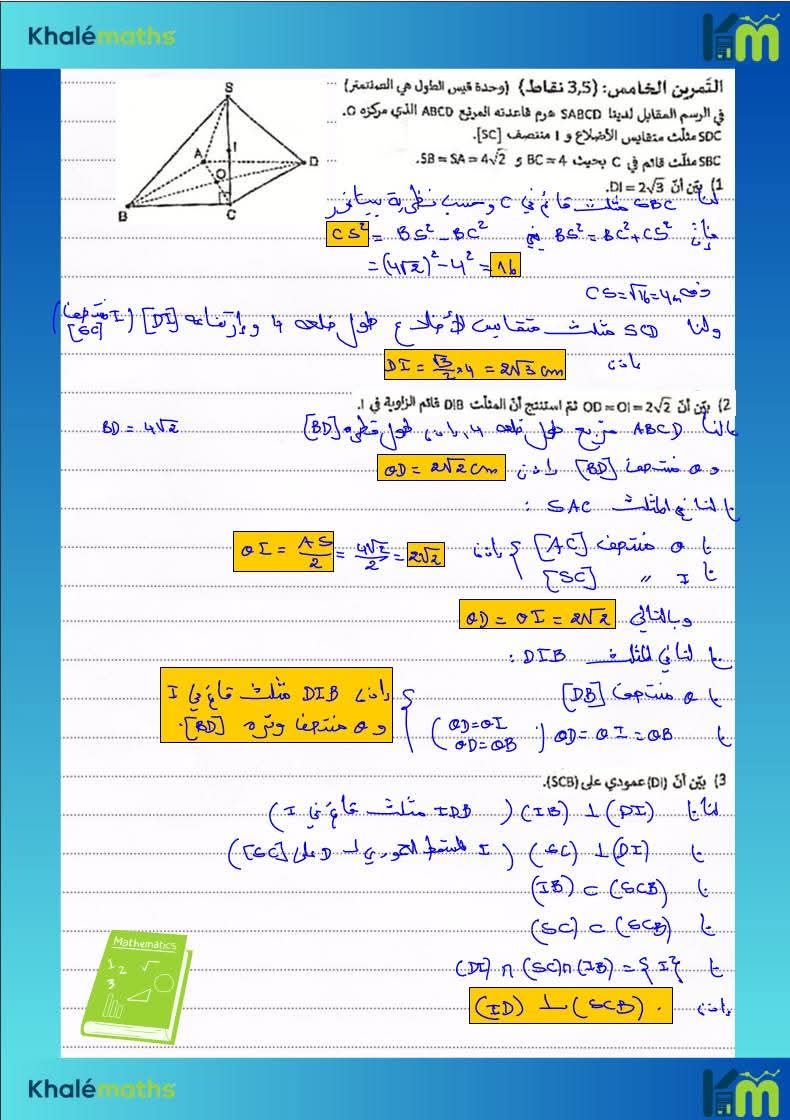 Khalémaths
التمرين الخامس: (3,5 نقاط) (وحدة قيس الطول هي الصنتمتر)
في الرسم المقابل لدينا SABCD هرم قاعدته المربع ABCD الذي مركزه O.
SDC مثلث متقايس الأضلاع و I منتصف [SC].
SBC مثلث قائم في C بحيث BC = 4 و SB = SA = 4√2.
1) بيّن أنّ DI = 2√3.
S
A
I
D
O
B
C
لنا SBC مثلث قائم في C وحسب نظرية بيتاغور
فإن BS² = BC² + CS² يعني CS² = BS² - BC²
= (4√2)² - 4² = 16
CS = √16 = 4
ولنا SCD مثلث متقايس الأضلاع طول ضلعه 4 و إرتفاعه [DI] (I منتصف [SC])
إذن DI = √3/2 × 4 = 2√3 cm
2) بيّن أنّ OD = OI = 2√2 ثمّ استنتج أنّ المثلّث DIB قائم الزاوية في I.
لنا ABCD مربع طول ضلعه 4 إذن طول قطره [BD] BD = 4√2
و O منتصف [BD] إذن OD = 2√2 cm
لنا في المثلث SAC :
O منتصف [AC]
I " [SC]
إذن OI = AS/2 = 4√2/2 = 2√2
وبالتالي OD = OI = 2√2
لنا في المثلث DIB :
O منتصف [DB]
OD = OI = OB (OD = OI OD = OB)
إذن DIB مثلث قائم في I
و O منتصف وتره [BD].
3) بيّن أنّ (DI) عمودي على (SCB).
لنا (DI) ⊥ (IB) (IDB مثلث قائم في I)
(DI) ⊥ (SC) (I المسقط العمودي لـ D على [SC])
(IB) ⊂ (SCB)
(SC) ⊂ (SCB)
(DI) ∩ (SC) ∩ (IB) = {I}
إذن (ID) ⊥ (SCB).
Mathematics
1 2 √
3
Khalémaths